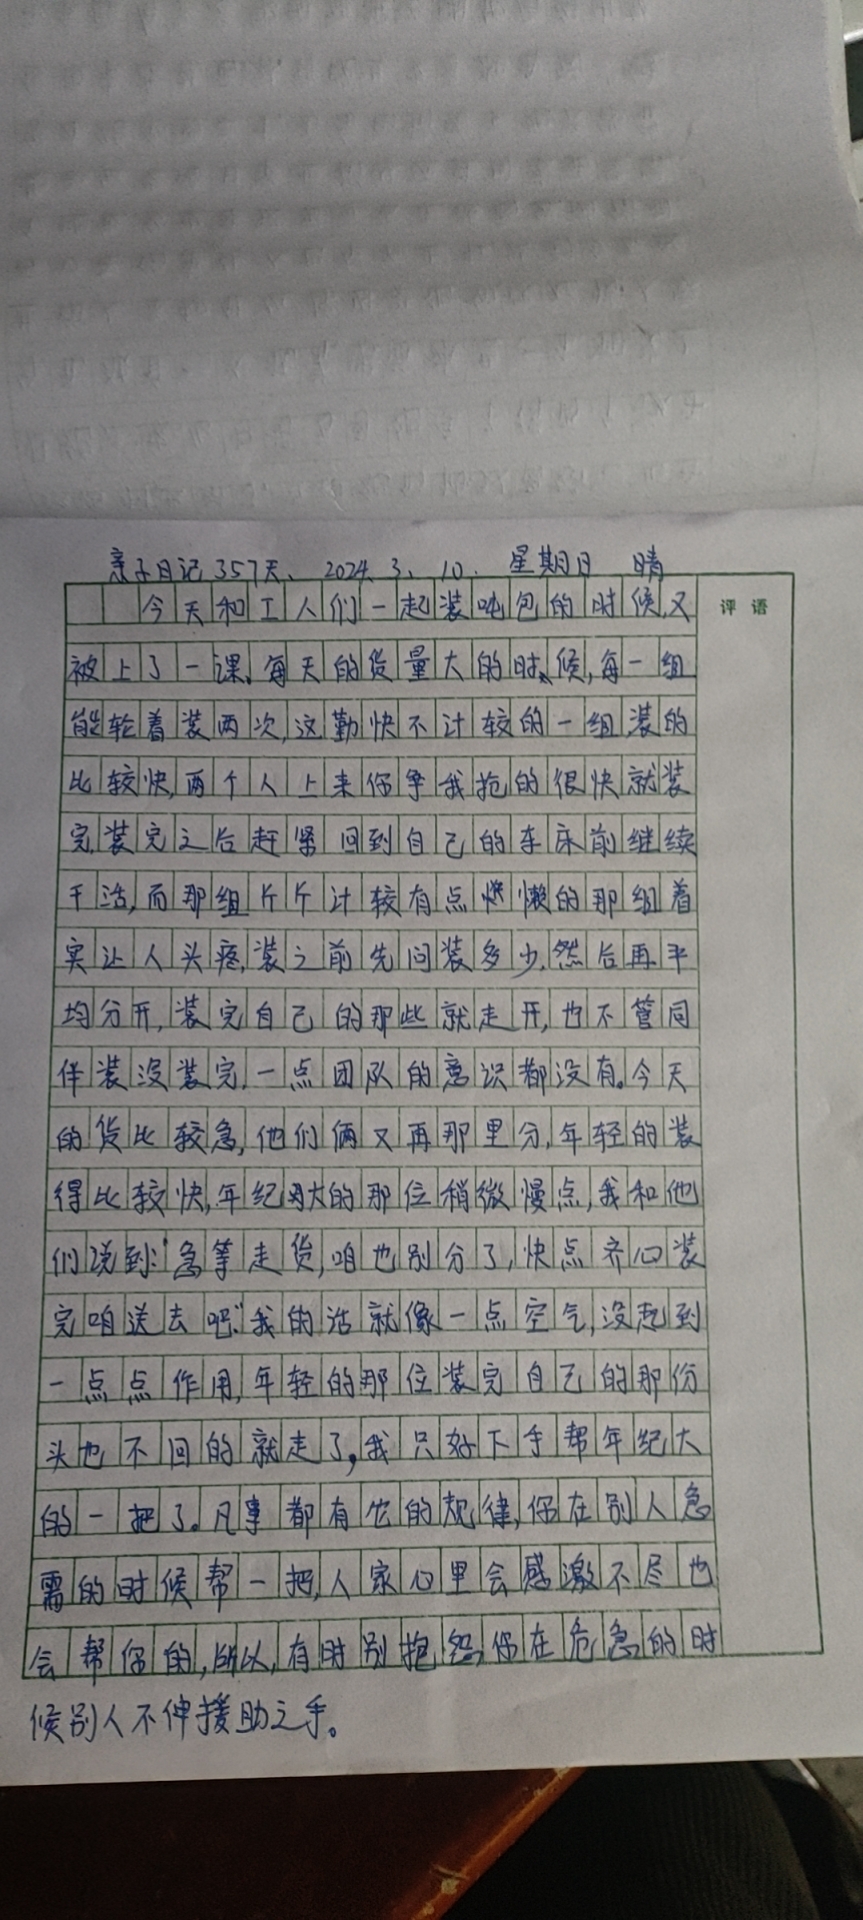 亲子日记357天、 2024、3、10. 星期日 晴
评语
今天和工人们一起装吨包的时候,又
被上了一课、每天的货量大的时、候,每一组
能轮着装两次,这勤快不计较的一组,装的
比较快,两个人上来你争我抢的很快就装
完,装完之后赶紧回到自己的车床前继续
干活,而那组斤斤计较有点懒的那组着
实让人头疼,装之前先问装多少,然后再平
均分开,装完自己的那些就走开,也不管同
伴装没装完,一点团队的意识都没有。今天
的货比较急,他们俩又再那里分,年轻的装
得比较快,年纪大的那位稍微慢点,我和他
们说到:“急等走货,咱也别分了,快点齐心装
完咱送去吧.”我的话就像一点空气,没起到
一点点作用,年轻的那位装完自己的那份
头也不回的就走了,我只好下手帮年纪大
的一把了。凡事都有它的规律,你在别人急
需的时候帮一把,人家心里会感激不尽也
会帮你的,所以,有时别抱怨,你在危急的时
候别人不伸援助之手。